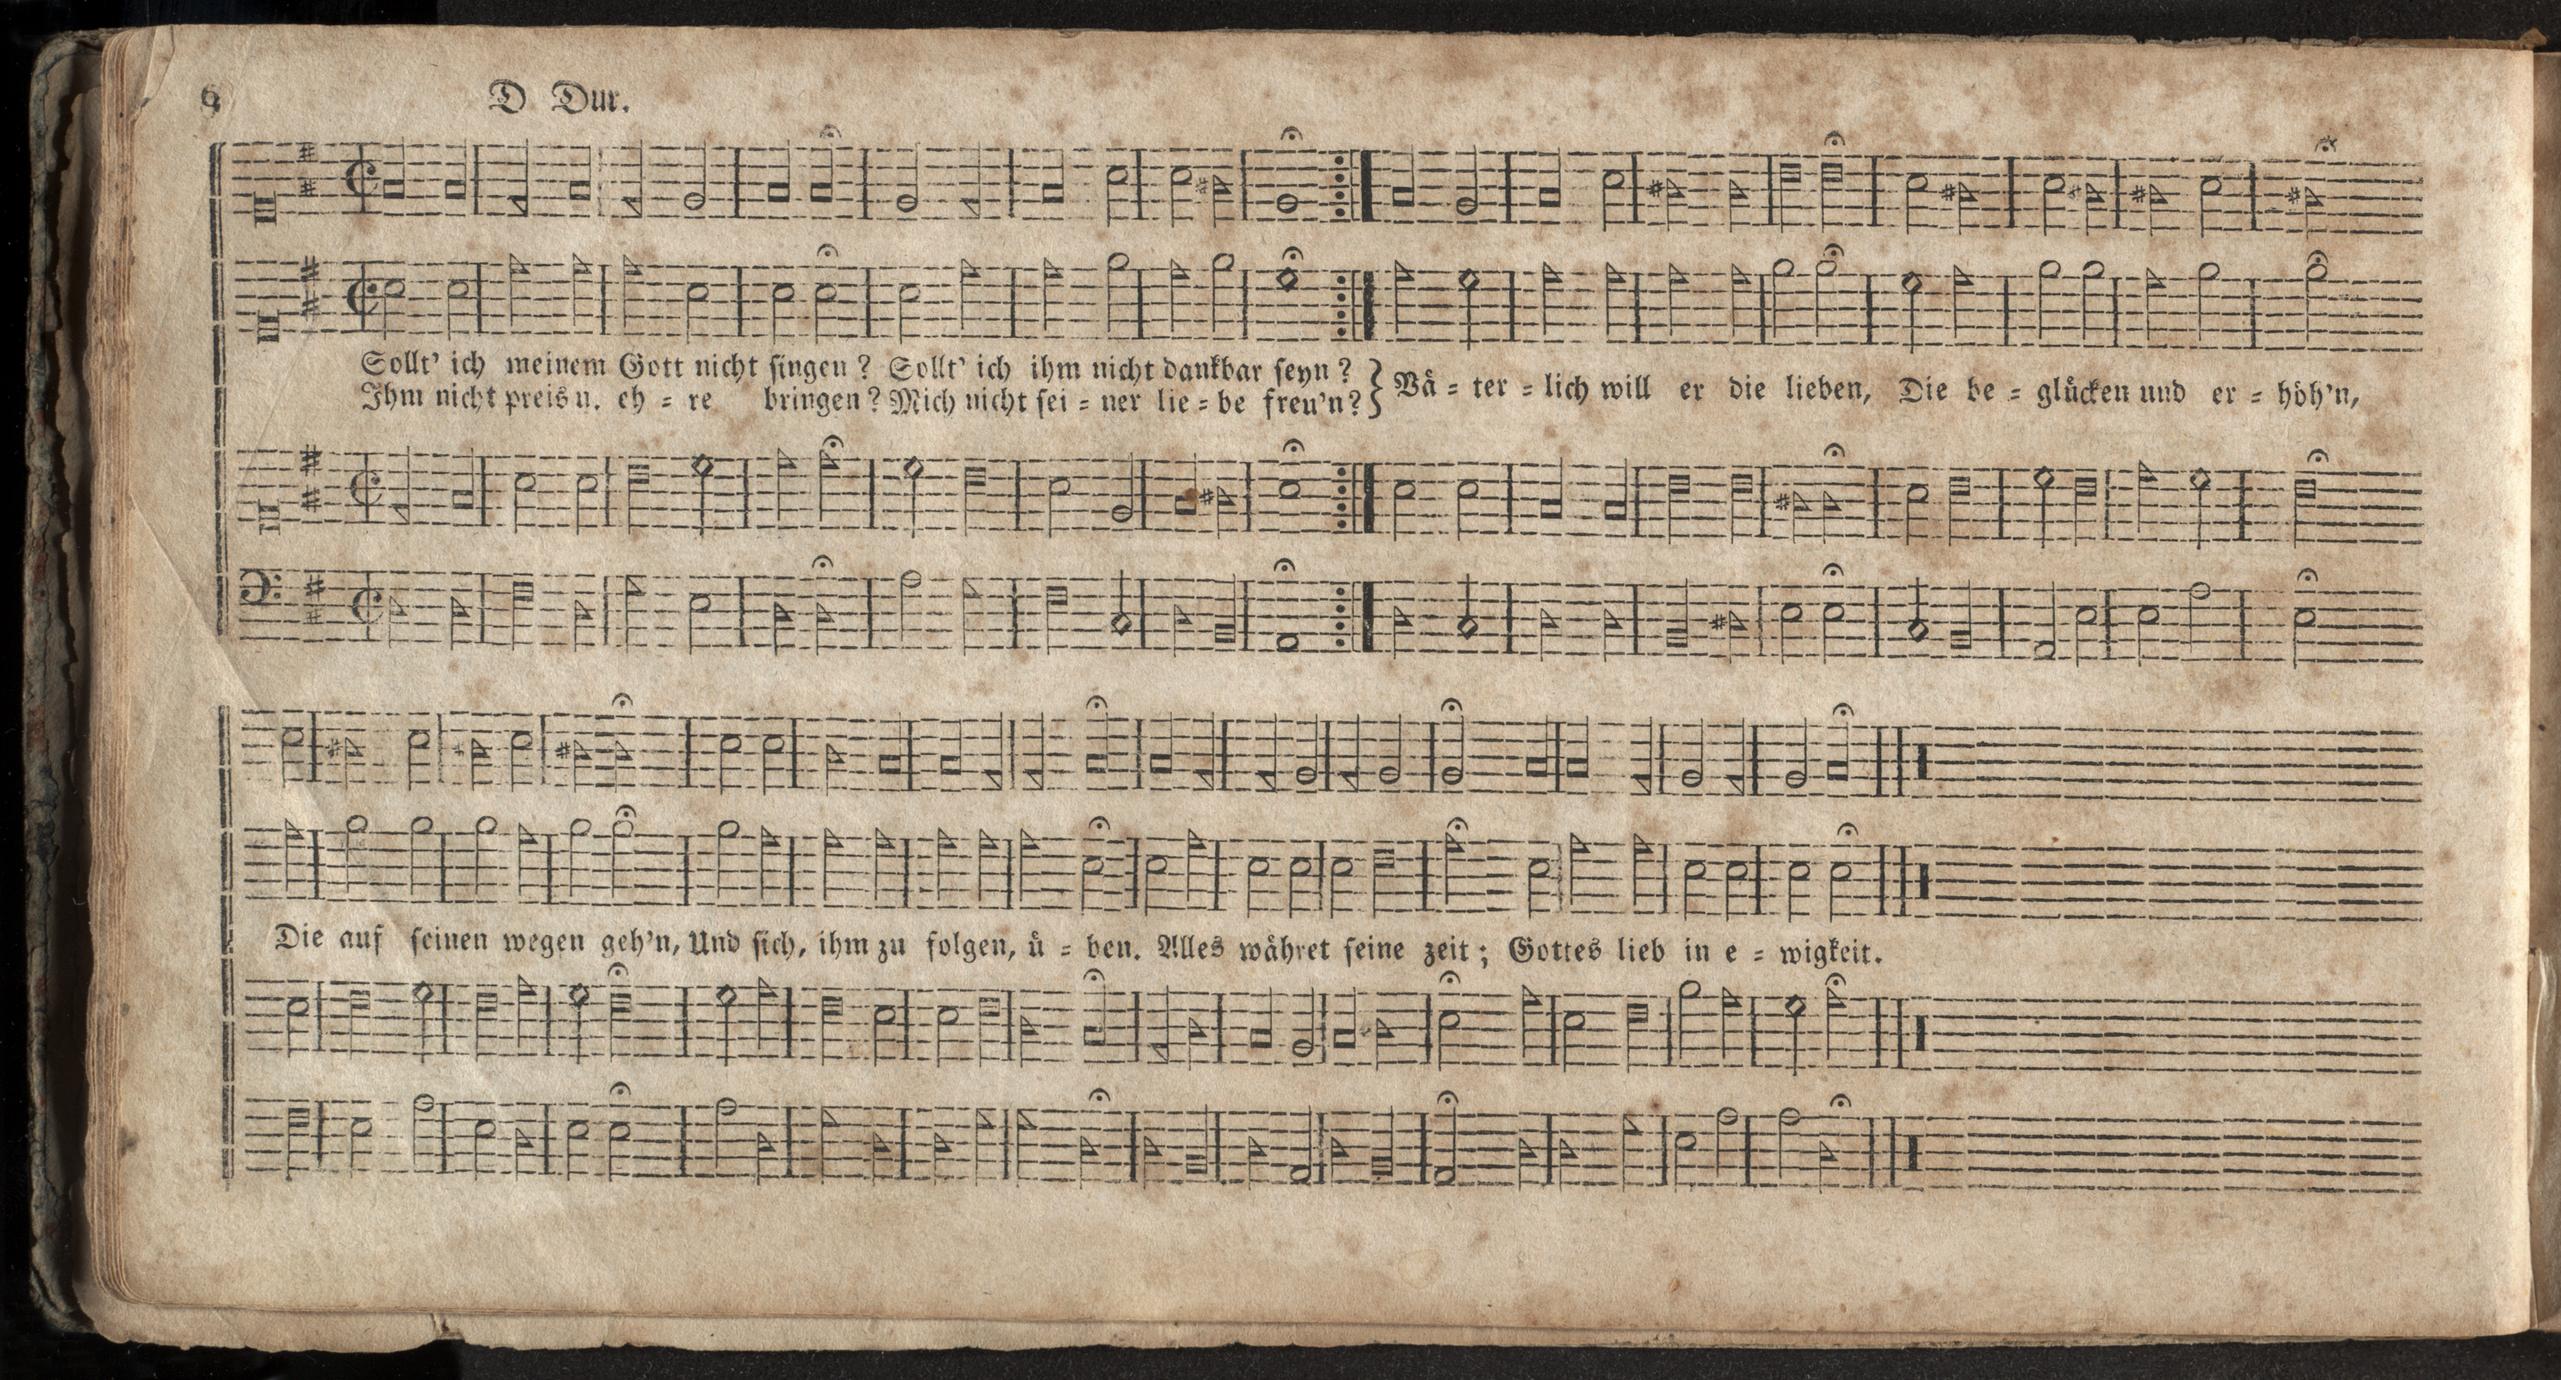 6
D Dur.
Sollt' ich meinem Gott nicht singen? Sollt' ich ihm nicht dankbar seyn?
Ihm nicht preis u. eh = re bringen? Mich nicht sei = ner lie = be freu'n?
Vä = ter = lich will er die lieben, Die be = glücken und er = höh'n,
Die auf seinen wegen geh'n, Und sich, ihm zu folgen, ü = ben. Alles währet seine zeit; Gottes lieb in e = wigkeit.